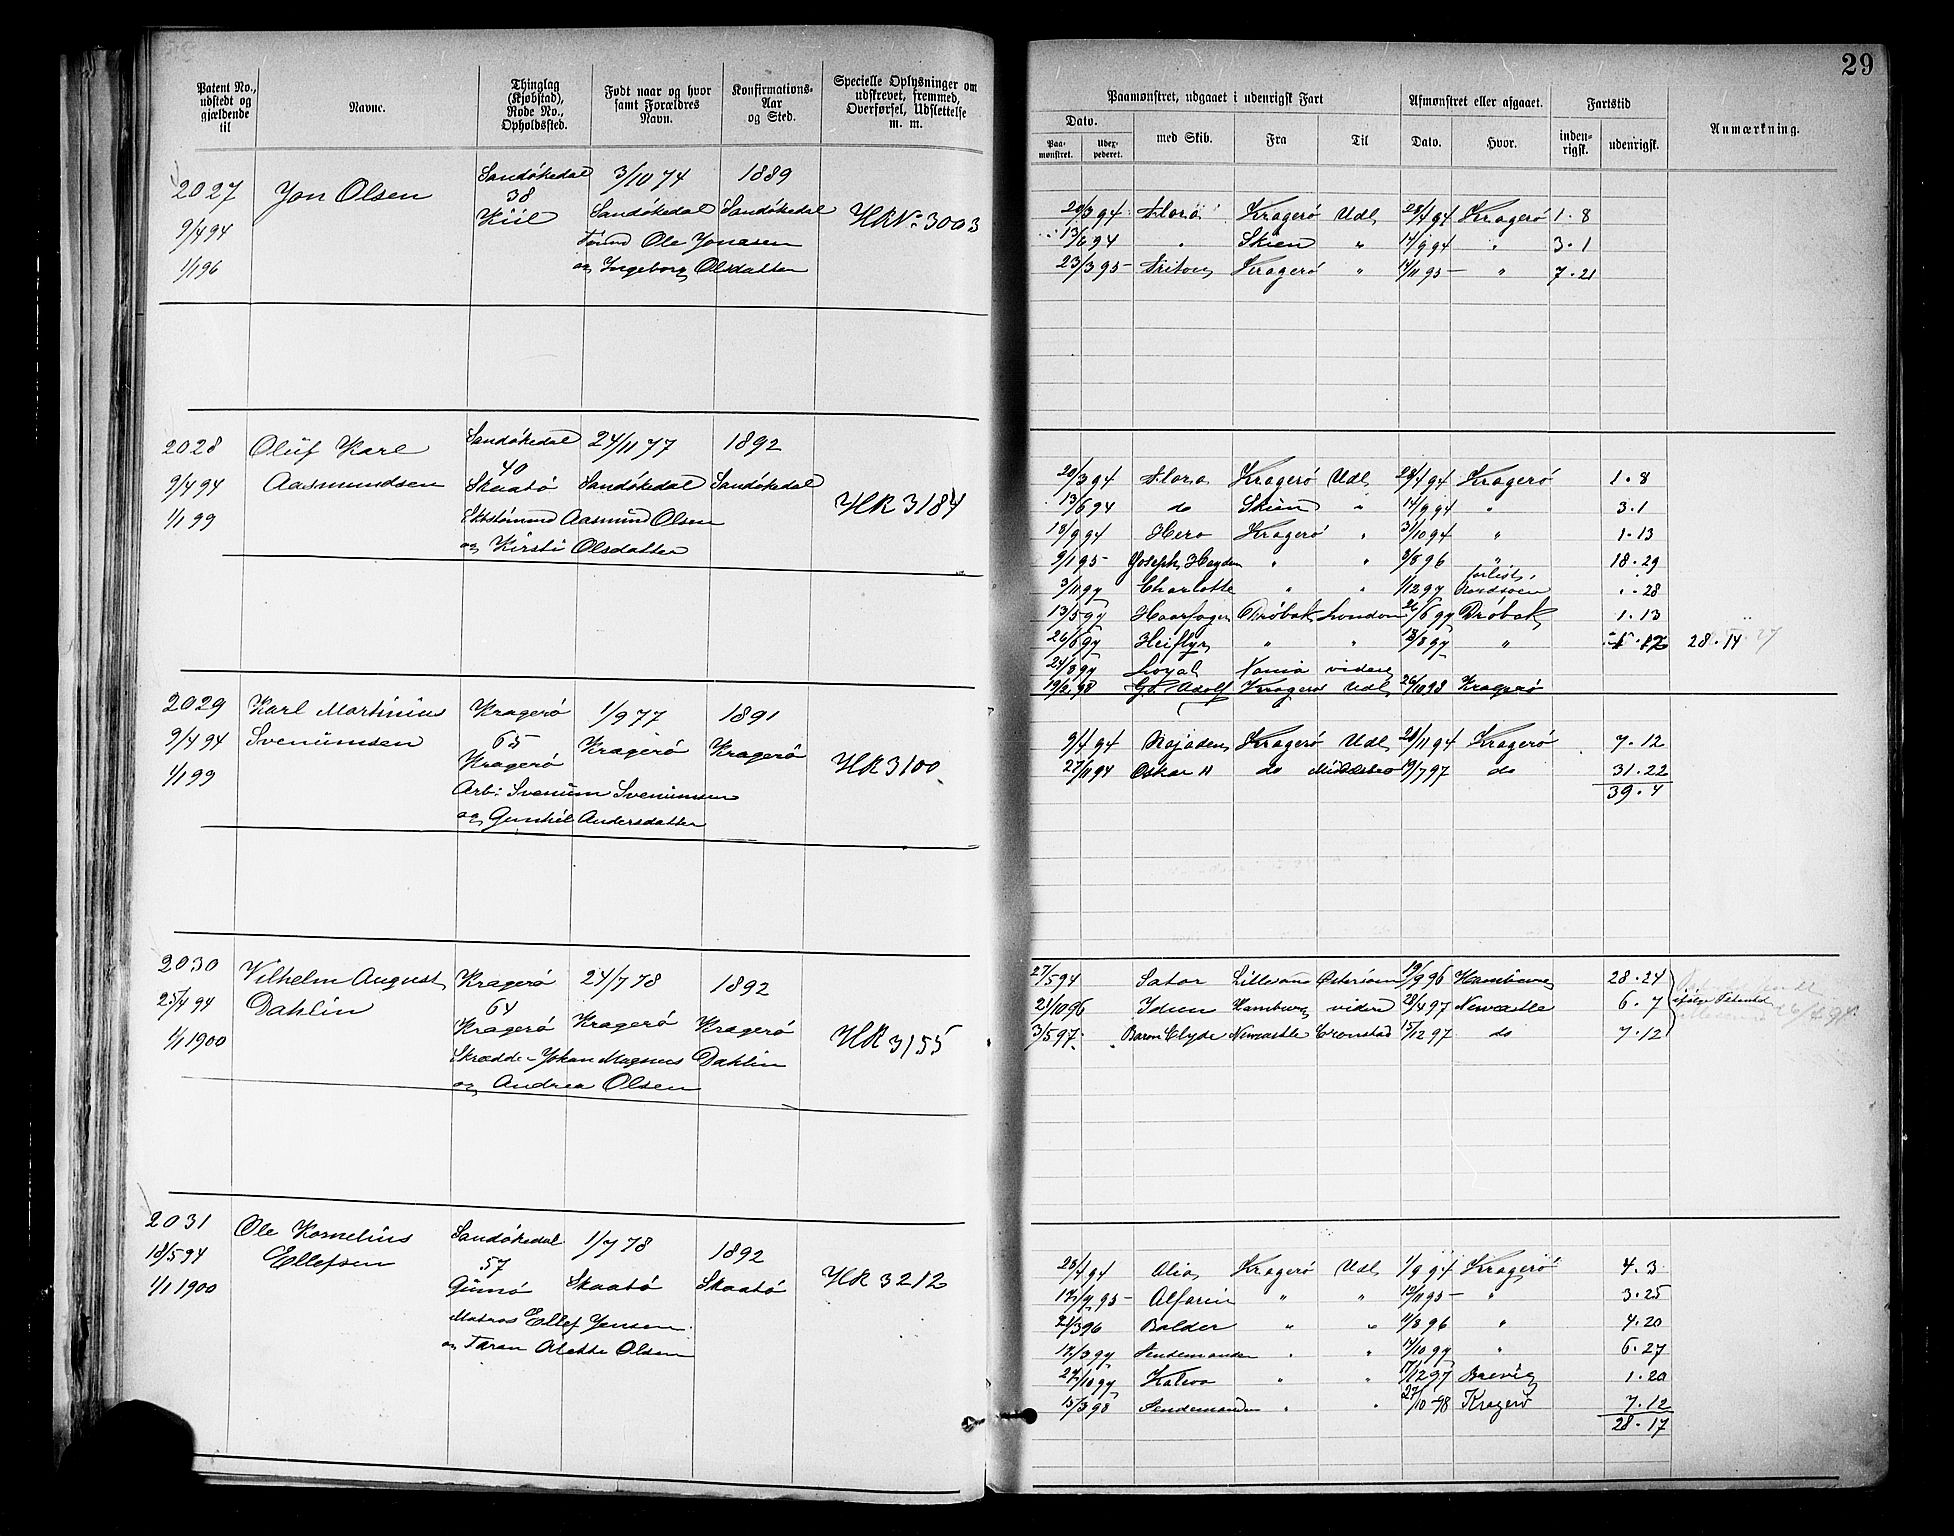 29
Patent No., udstedt og gjældende til
Navne.
Thinglag (Kjøbstad), Rode No., Opholdssted.
Født naar og hvor samt Forældres Navn.
Konfirmations-Aar og Sted.
Specielle Oplysninger om udskrevet, fremmed, Overførsel, Udslettelse m. m.
Paamønstret, udgaaet i udenrigsk Fart
Afmønstret eller afgaaet.
Fartstid
Anmærkning.
Dato.
Paamønstret.
Udexpederet.
med Skib.
Fra
Til
Dato.
Hvor.
indenrigsk.
udenrigsk.
2027 Jon Olsen Sandøkedal 3/10 74 1889
38
9/4 94 Kiil Sandøkedal Sandøkedal HR No 3003
Ole Jonasen
1/1 96 og Ingeborg Olsdatter
20/3 94 Flora Kragerø Udl 28/4 94 Kragerø 1.8
13/6 94 " Skien " 14/9 94 " 3.1
23/3 95 Triton Kragerø " 14/11 95 " 7.21
2028 Oluf Karl Sandøkedal 24/11 77 1892
40
9/4 94 Aasmundsen Skaatø Sandøkedal Sandøkedal HR 3184
1/1 99 Aasmund Olsen
og Kirsti Olsdatter
20/3 94 Flora Kragerø Udl 28/4 94 Kragerø 1.8
13/6 94 do Skien " 14/9 94 " 3.1
18/9 94 Hero Kragerø " 31/10 94 " 1.13
9/1 95 Joseph Haydn " " 3/8 96 " 18.29
3/11 97 Charlotte " " 1/12 97 forlist, Nordsøen .28
13/5 97 Haarfager Drøbak London 26/6 97 Drøbak 1.13
26/6 97 " " 18/8 97 " 28.14
24/8 97 Loyal videre
19/2 98 G. Adolf Kragerø Udl 26/10 98 Kragerø
2029 Karl Martinius Kragerø 1/9 77 1891
65
9/4 94 Svenumsen Kragerø Kragerø Kragerø HR 3100
1/1 99 Arb: Svenum Svenumsen
og Gunhil Andersdatter
9/4 94 Najaden Kragerø Udl 28/11 94 Kragerø 7.12
27/11 94 Oskar II do 19/7 97 do 31.22
39.4
2030 Vilhelm August Kragerø 24/7 78 1892
64
25/4 94 Dahlin Kragerø Kragerø Kragerø HR 3155
1/1 1900 Skrædder Johan Magnus Dahlin
og Andrea Olsen
27/5 94 Sator 19/9 96 Hamburg 28.24
21/10 96 Idun Hamburg videre 28/4 97 Newcastle 6.7
3/5 97 Baron Clyde Newcastle Cronstad 15/12 97 do 7.12
2031 Ole Kornelius Sandøkedal 1/7 78 1892
57
18/5 94 Ellefsen Gumø Skaatø Skaatø HR 3212
1/1 1900 Matros Ellef Jensen
og Taran Alette Olsen
28/4 94 Kragerø Udl 1/9 94 Kragerø 4.3
17/7 95 Alfarin " " 12/11 95 " 3.25
21/3 96 Balder " " 11/8 96 " 4.20
17/3 97 Sendemanden " " 14/10 97 " 6.27
27/10 97 " " 17/12 97 Brevig 1.20
15/3 98 Sendemanden " " 27/10 98 Kragerø 7.12
28.17